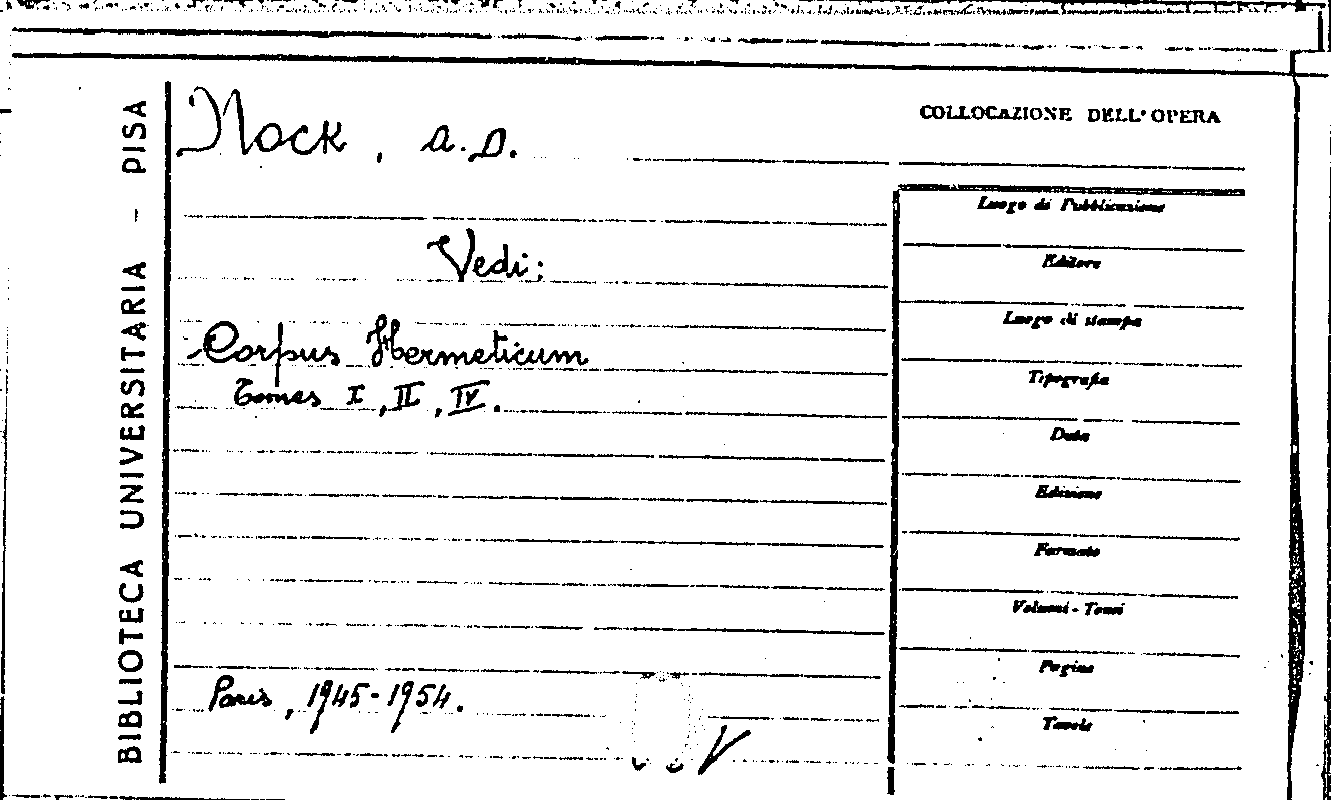 BIBLIOTECA UNIVERSITARIA - PISA
Nock, A.D.
Vedi:
Corpus Hermeticum
Tomes I, II, IV.
Paris, 1945-1954.
V
COLLOCAZIONE DELL'OPERA
Luogo di Pubblicazione
Editore
Luogo di stampa
Tipografia
Data
Edizione
Formato
Volumi - Tomi
Pagine
Tavole